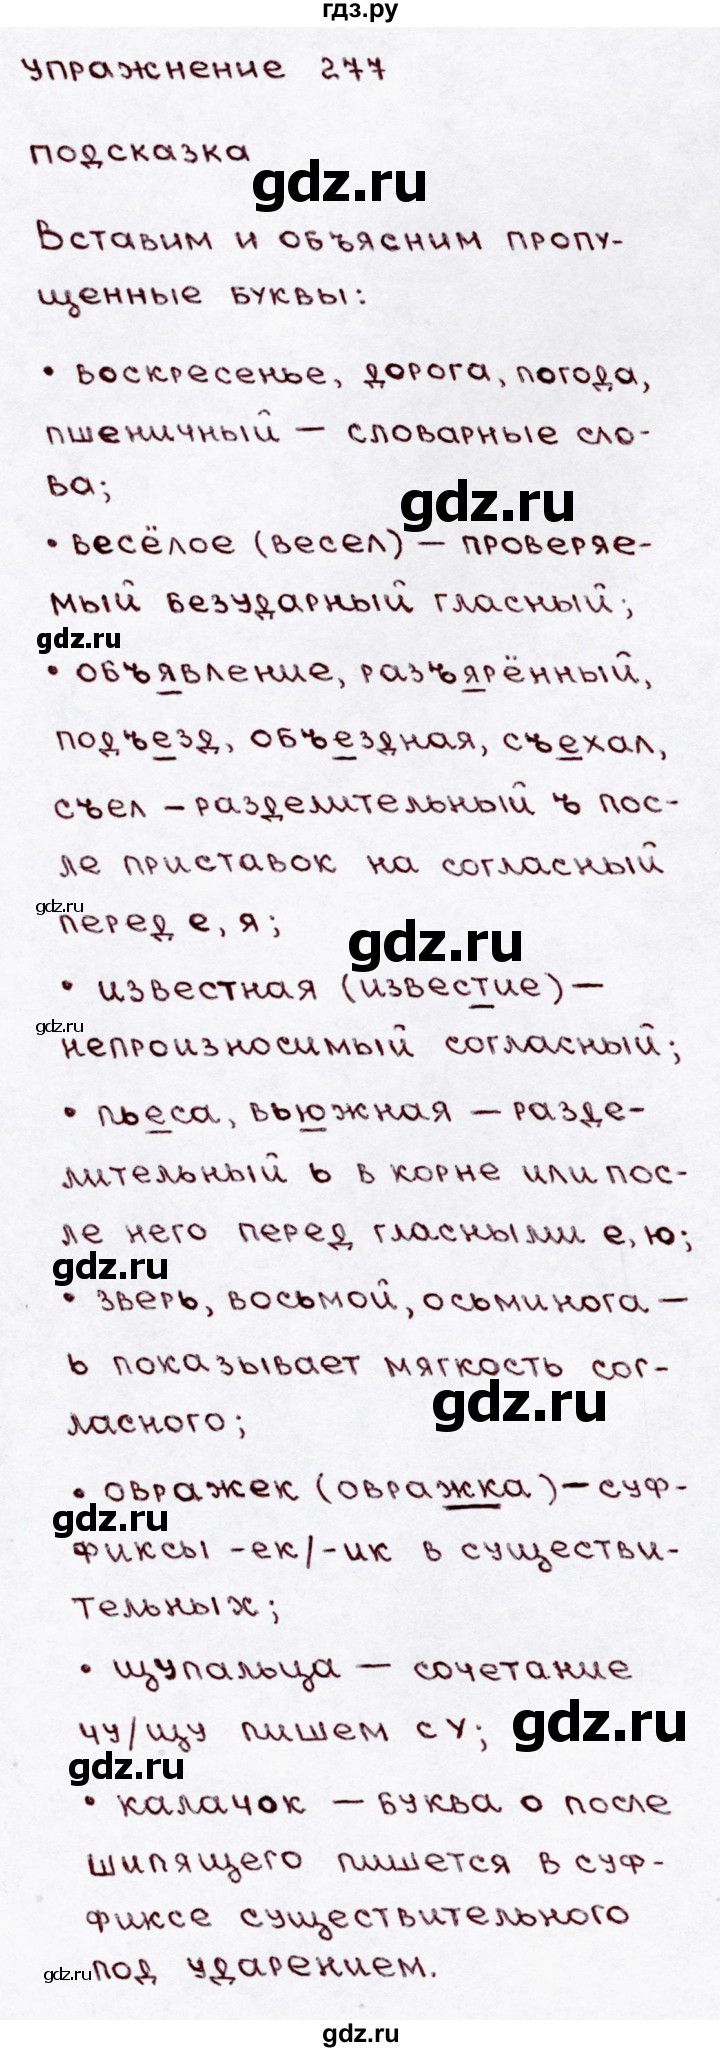 гдз.ру
Упражнение 277
подсказка
gdz.ru
Вставим и объясним пропу-
щенные буквы:
• воскресенье, дорога, погода,
пшеничный – словарные сло-
ва;
gdz.ru
• весёлое (весел) – проверяе-
мый безударный гласный;
gdz.ru
• объявление, разъярённый,
подъезд, объездная, съехал,
съел – разделительный ъ пос-
ле приставок на согласный
gdz.ru
перед е, я;
gdz.ru
• известная (известие) –
gdz.ru
непроизносимый согласный;
• пьеса, вьюжная – разде-
лительный ь в корне или пос-
ле него перед гласными е, ю;
gdz.ru
• зверь, восьмой, осьминога –
ь показывает мягкость сог-
gdz.ru
ласного;
• овражек (овражка) – суф-
gdz.ru
фиксы -ек/-ик в существи-
тельных;
• щупальца – сочетание
чу/щу пишем с у;
gdz.ru
gdz.ru
• калачок – буква о после
шипящего пишется в суф-
фиксе существительного
gdz.ru
под ударением.
gdz.ru